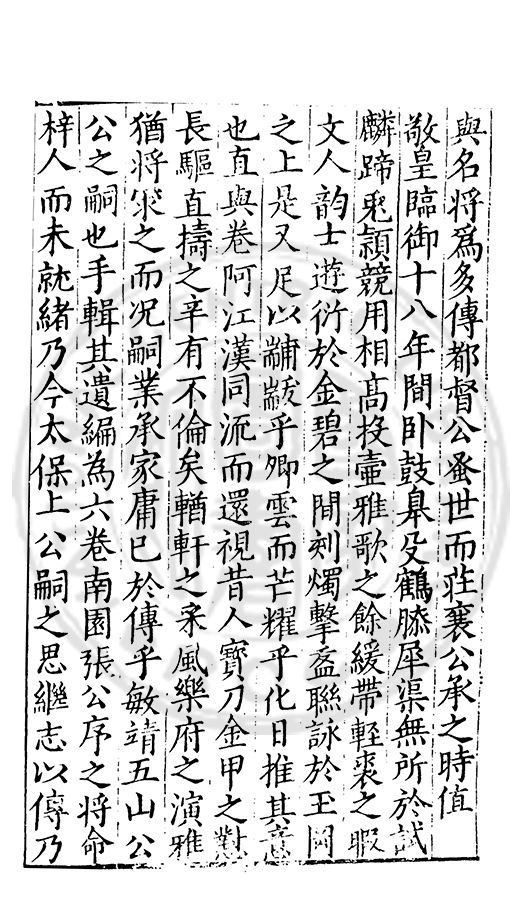 與名將爲多傳都督公蚤世而莊襄公承之時值
敬皇臨御十八年間卧鼓臯殳鶴膝犀渠無所於試
麟蹄兎頴競用相高投壺雅歌之餘緩帶輕裘之暇
文人韵士遊衍於金碧之間刻燭擊盋聯詠於玉岡
之上是又足以黼黻乎卿雲而芒耀乎化日推其意
也直與卷阿江漢同流而還視昔人寳刀金甲之對
長驅直擣之辛有不倫矣輶軒之采風樂府之演雅
猶將求之而况嗣業承家庸已於傳乎敏靖五山公
公之嗣也手輯其遺編為六卷南園張公序之將命
梓人而未就緒乃今太保上公嗣之思繼志以傳乃